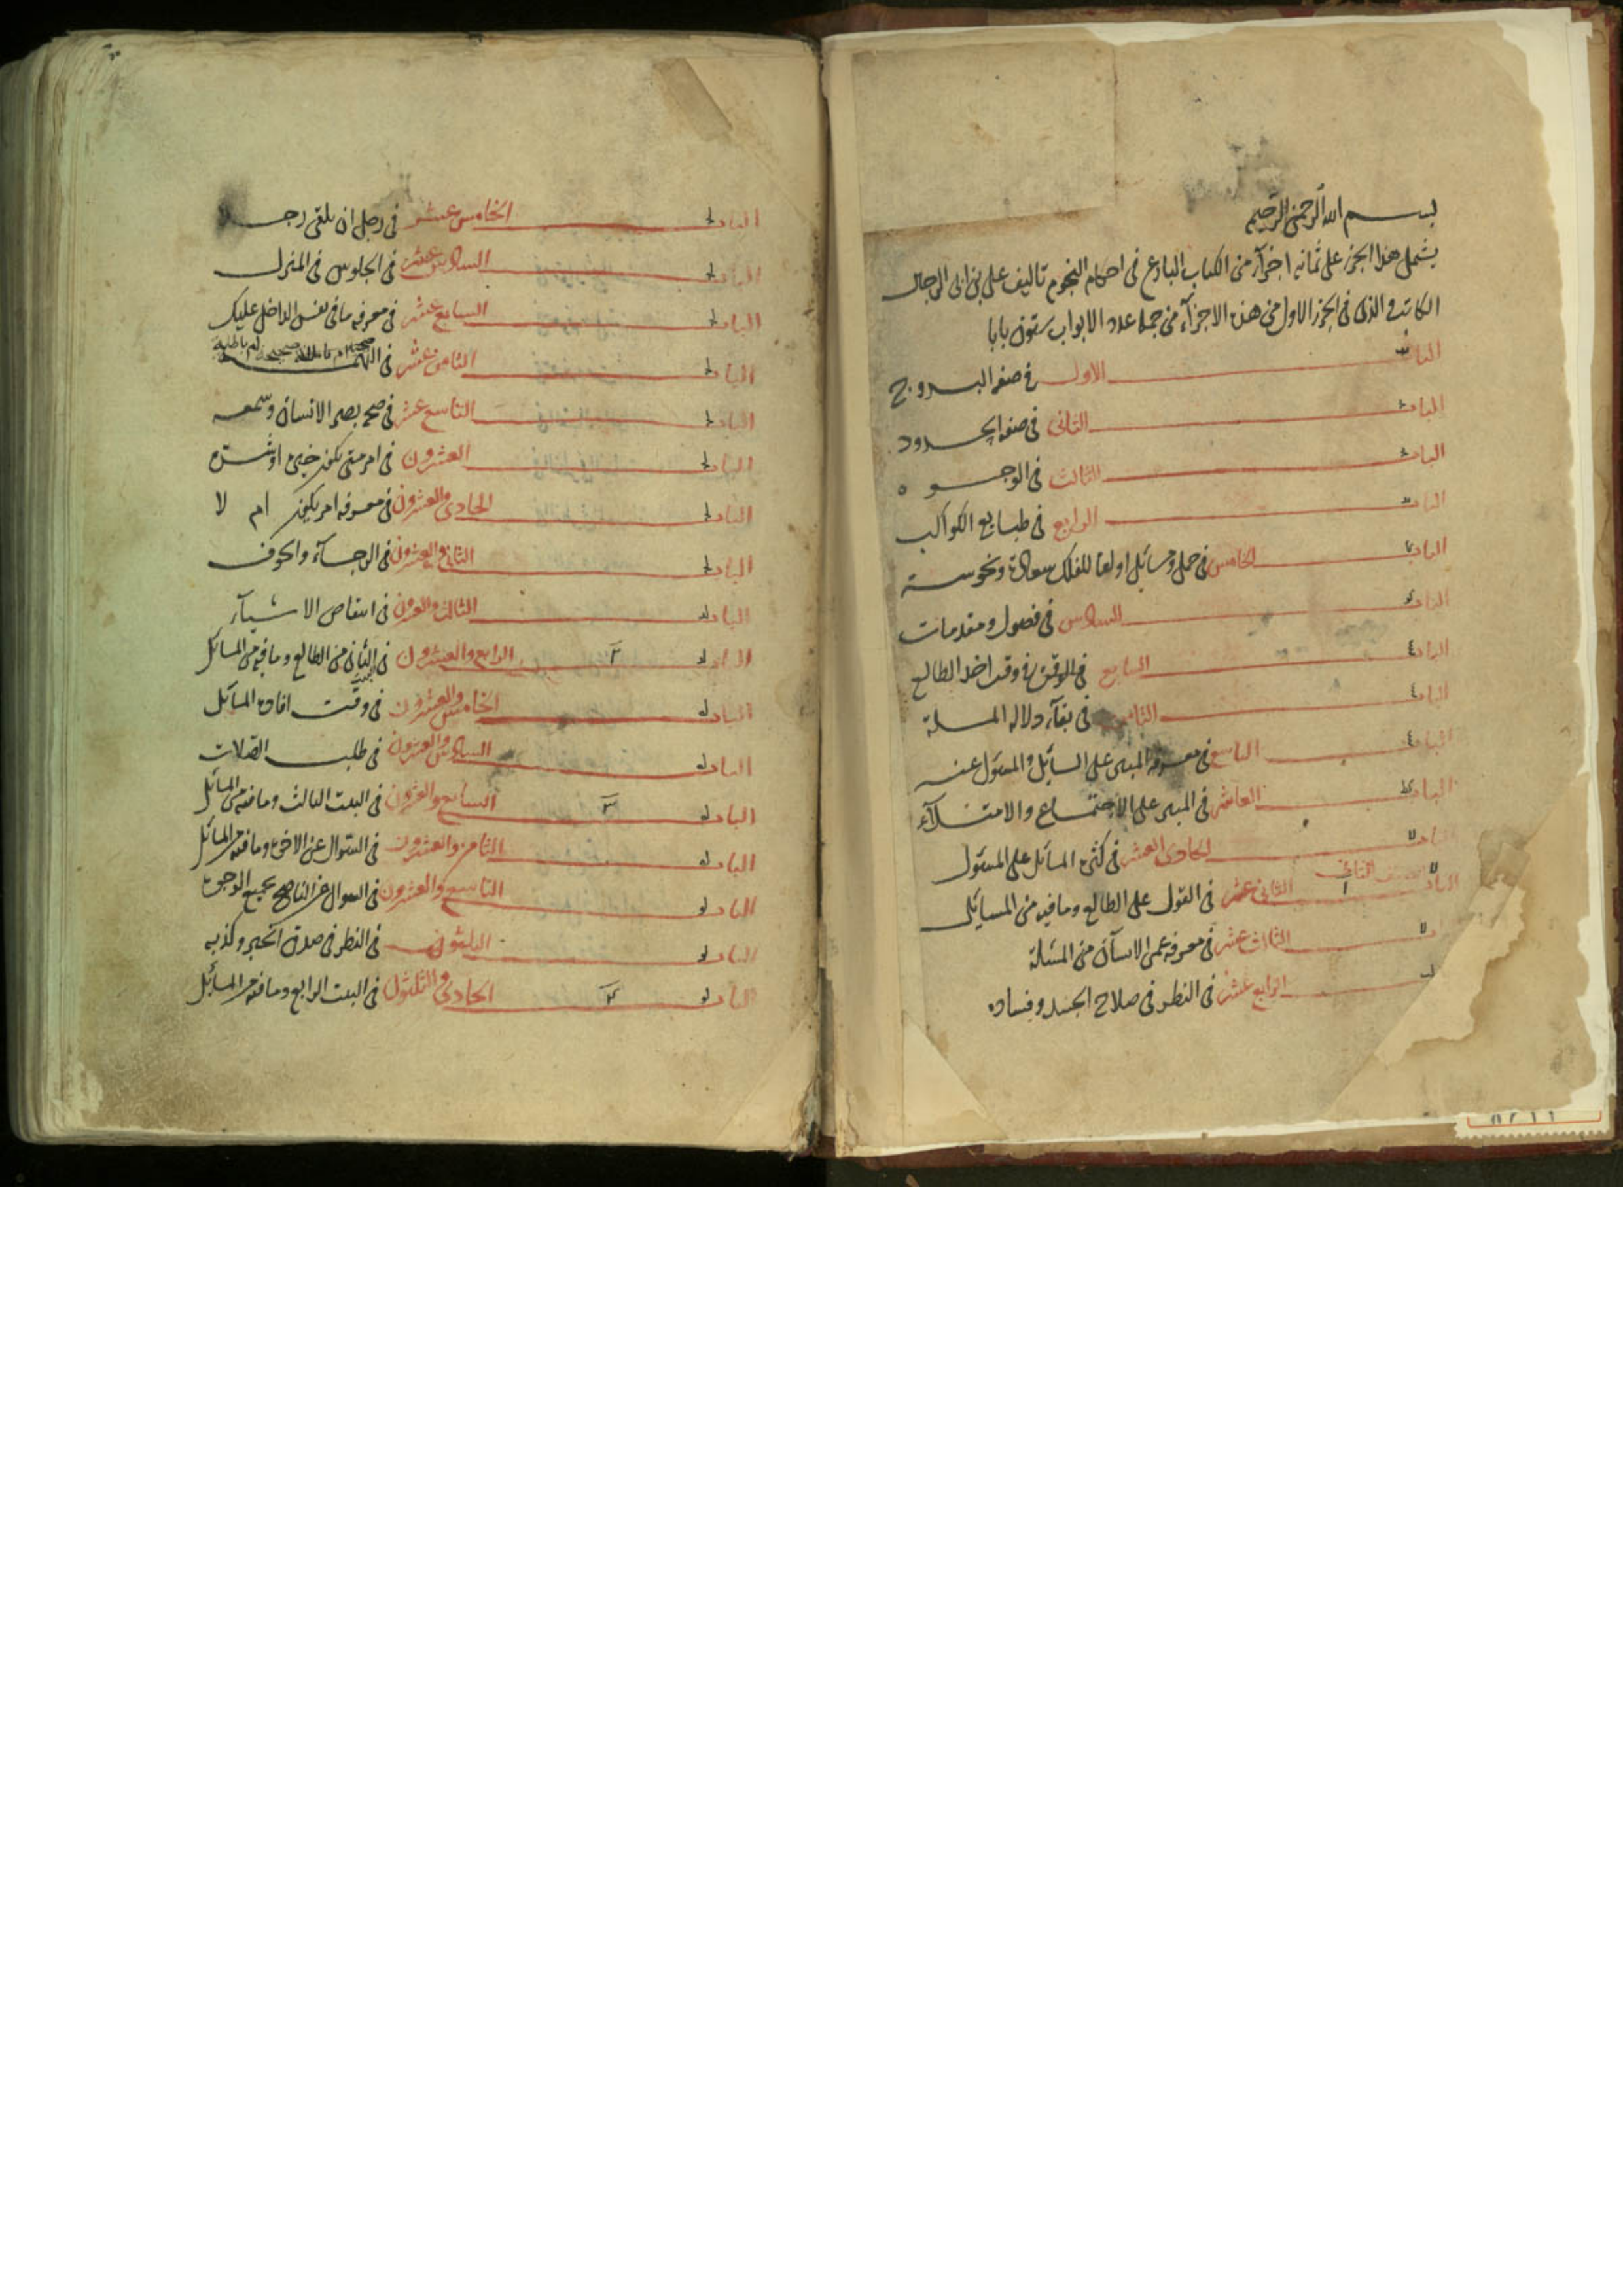 بسم الله الرحمن الرحيم
يشمل هذا الجزء على ثمانيه اجزآء من الكتاب البارع فى احكام النجوم تاليف على بن ابى الرجال
الكاتب والذى فى الجزء الاول من هذه الاجزآء من جملة عدد الابواب ستون بابا
الباب الاول فى صفه البروج
الباب الثانى فى صفه الحدود
الباب الثالث فى الوجوه
الباب الرابع فى طبايع الكواكب
الباب الخامس فى جمل ومسائل اولها للفلك سعادة ونحوسة
الباب السادس فى فصول ومقدمات
الباب السابع فى الوقت فى وقت اخذ الطالع
الباب الثامن فى بقآء دلاله المسلة
الباب التاسع فى معرفه المبتز على السايل والمسئول عنه
الباب العاشر فى المبتز على الاجتماع والامتلآء
الباب الحادى العشر فى كثرة المسائل على المسئول
النصف الثانى
الباب الثانى عشر فى القول على الطالع وما فيه من المسايل
الثالث عشر فى معرفه عمر الانسان من المسئلة
الرابع عشر فى النظر فى صلاح الجسد وفساده
الباب الخامس عشر فى رجل ان يلقى رجلا
الباب السادس عشر فى الجلوس فى المنزل
الباب السابع عشر فى معرفه ما فى نفس الداخل عليك
الباب الثامن عشر فى التهمة صحيحة ام باطلة
الباب التاسع عشر فى صحه بصر الانسان وسمعه
الباب العشرون فى امر متى يكون خيره او شره
الباب الحادى والعشرون فى معرفه امر يكون ام لا
الباب الثانى والعشرون فى الرجآء والخوف
الباب الثالث والعشرون فى انتقاص الاشيآء
الباب الرابع والعشرون فى البيت الثانى من الطالع وما فيه من المسائل
الباب الخامس والعشرون فى وقت افاده المسآئل
الباب السادس والعشرون فى طلب الصلات
الباب السابع والعشرون فى البيت الثالث وما فيه من المسائل
الباب الثامن والعشرون فى السوال عن الاخوة وما فيه من المسائل
الباب التاسع والعشرون فى السوال عن الناصح بجميع الوجوه
الباب الثلثون فى النظر فى صدق الخبر وكذبه
الباب الحادى والثلثون فى البيت الرابع وما فيه من المسائل